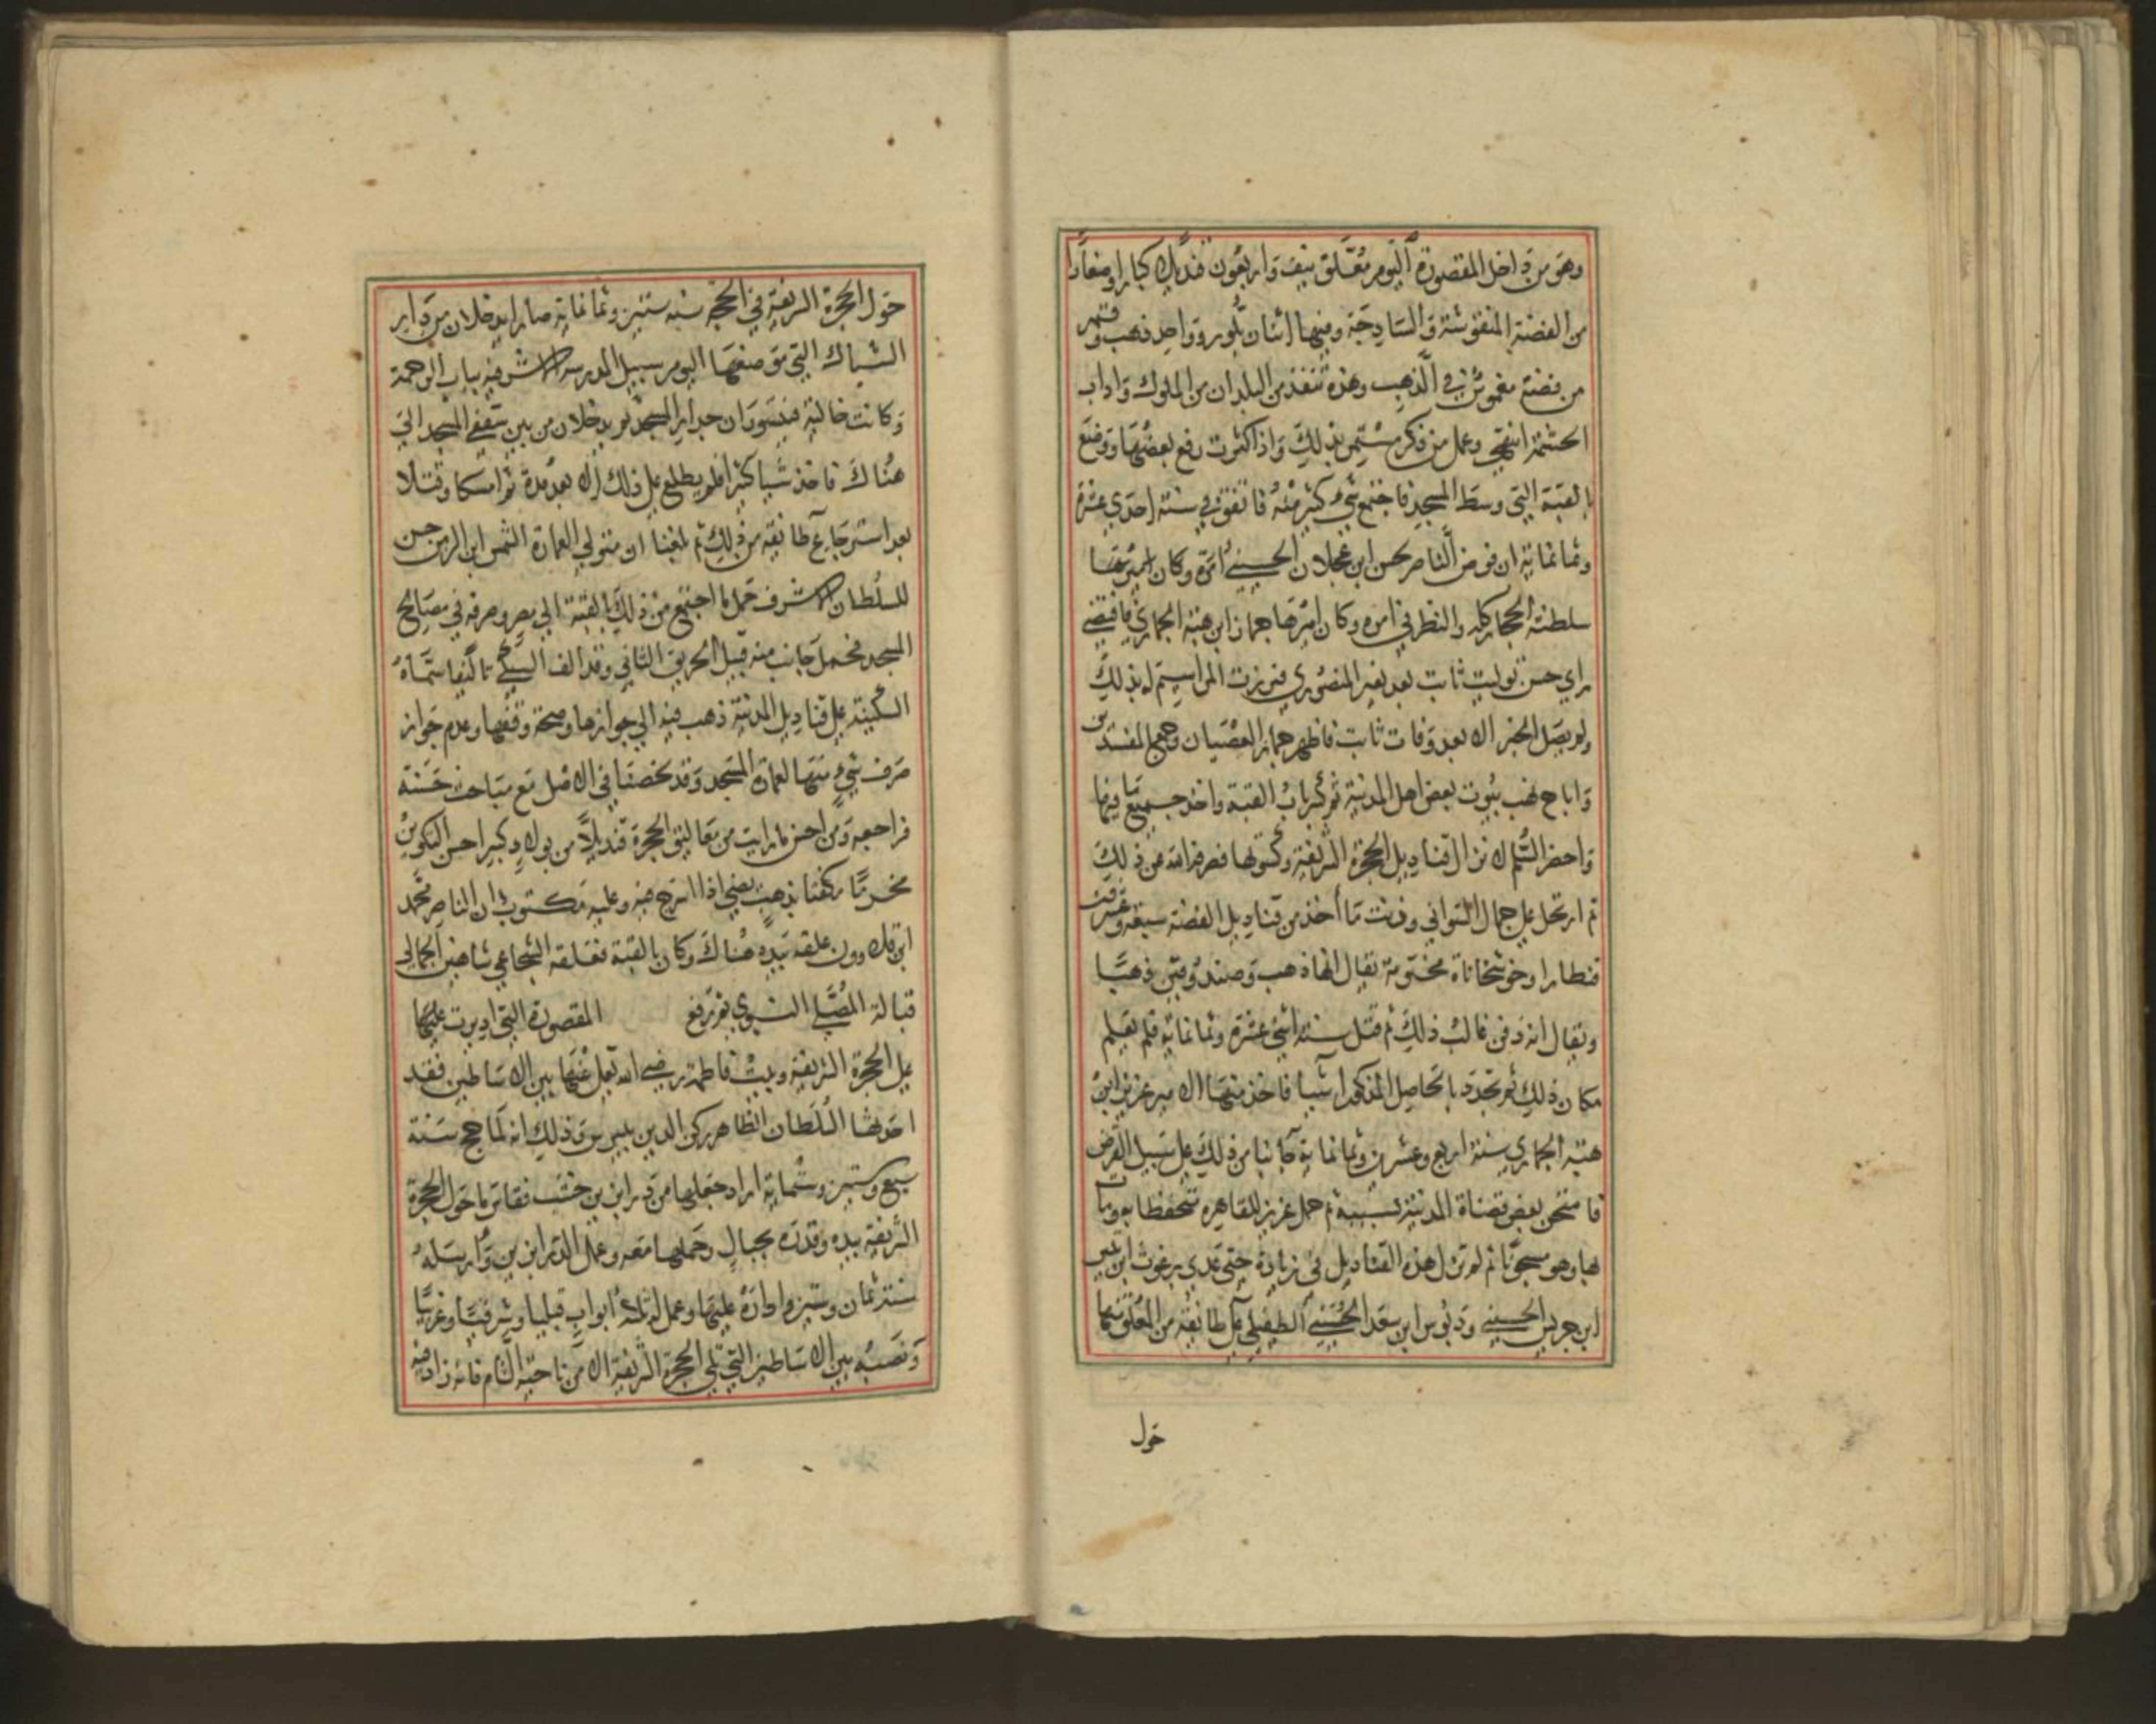 وهو من داخل المقصورة اليوم معلق نيف واربعون قنديلا كبارا وصغارا
من الفضة المنقوشة والساذجة وفيها اثنان بلور وواحد ذهب وقمر
من فضة مغموس في الذهب وهذه تنفذ من البلدان من الملوك وارباب
الحشمة انتهى وعمل من ذكر مستمر بذلك واذا كثرت رفع بعضها ووضع
بالقبة التي وسط المسجد فاجتمع شي كثير منه فاتفق في سنة احدي عشرة
وثمانمائة ان فوض الناصر لحسن ابن عجلان الحسيني امرة وكان امير
سلطنة الحجاز كله والنظر في امره وكان اميرها جماز ابن هبة الجمازي فاقتضي
راي حسن تولية ثابت بعد نعير المنصوري فبرزت المراسيم له بذلك
ولم يصل الخبر الا بعد وفات ثابت فاظهر جماز العصيان وجمع المفسدين
واباح نهب بيوت بعض اهل المدينة ثم كسر باب القبة واخذ جميع ما فيها
واحضر السلم لانزال قناديل الحجرة الشريفة وكسوتها فصرفه الله عن ذلك
ثم ارتحل على جمال السواني وزنت ما أخذ من قناديل الفضة سبعة وعشرين
قنطارا وخوشخاناة مختومة يقال انها ذهب وصندوقين ذهبا
ويقال انه دفن غالب ذلك ثم قتل سنة اثني عشرة وثمانمائة فلم يعلم
مكان ذلك ثم تجدد بالحاصل المذكور اشيا فاخذ منها الامير عزيز ابن
هبة الجمازي سنة اربع وعشرين وثمانمائة جانبا من ذلك على سبيل القرض
فامتحن بعض قضاة المدينة بسببه ثم حمل عزيز للقاهرة متحفظا به ومات
بها وهو مسجونا ثم لم تزل هذه القناديل في زيادة حتى عدي برغوث ابن بتير
ابن جريس الحسيني ودبوس ابن سعد الحسيني الطفيلي على طائفة من المعلق منها
حول
حول الحجرة الشريفة في الحجة سنة ستين وثمانماية صارا يدخلان من دار
الشباك التي موضعها اليوم سبيل المدرسة الاشرفية بباب الرحمة
وكانت خالية فيتسوران جدار المسجد ثم يدخلان من بين سقفي المسجد الي
هناك فاخذ شيا كثيرا فلم يطلع على ذلك الا بعد مدة ثم امسكا وقتلا
بعد استرجاع طائفة من ذلك ثم بلغنا ان متولي العمارة الشمس ابن الزمن حسن
للسلطان الاشرف حمل ما اجتمع من ذلك بالقبة الي مصر وصرفه في مصالح
المسجد فحمل جانب منه قبيل الحريق الثاني وقد الف السبكي تاليفا سماه
السكينة على قناديل المدينة ذهب فيه الي جوازها وصحة وقفها وعدم جواز
صرف شيء منها لعمارة المسجد وقد لخصنا في الاصل مع مباحث حسنة
فراجعه ومن احسن ما رايت من معاليق الحجرة قنديلا من بولاد كبير احسن التكوين
مخرما مكفتا بذهب يضي اذا اسرج فيه وعليه مكتوب ان الناصر محمد
ابن قلاوون علقه بيده هناك وكان بالقبة فعلقه الشجاعي شاهين الجمالي
قبالة المصلي النبوي ثم رفع المقصورة التي اديرت عليها
على الحجرة الشريفة وبيت فاطمة رضي الله تعالى عنها بين الاساطين فقد
احدثها السلطان الظاهر ركن الدين بيبرس وذلك انه لما حج سنة
سبع وستين وستمائة اراد جعلها من درابزين خشب فقاس ما حول الحجرة
الشريفة بيده وقدره بحبال وحملها معه وعمل الدرابزين وارسله
سنة ثمان وستين واداره عليها وعمل له ثلثة ابواب قبليا وشرقيا وغربيا
ونصبه بين الاساطين التي تلي الحجرة الشريفة الا من ناحية الشام فانه زاد فيه